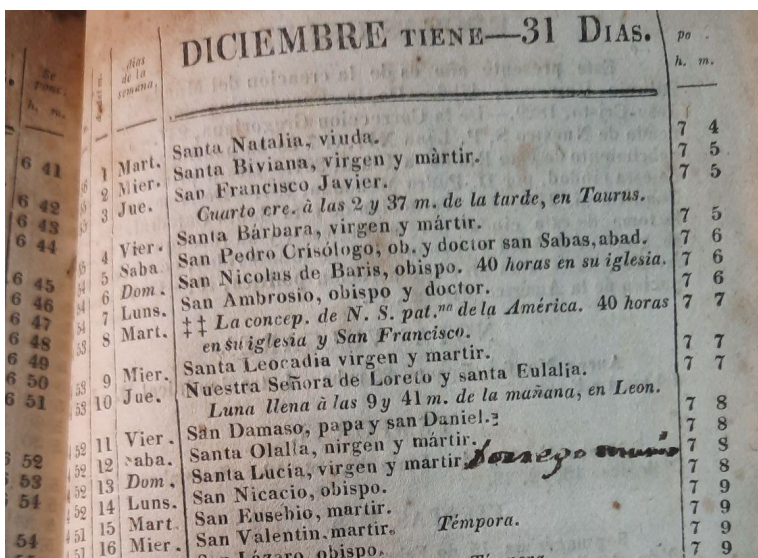 DICIEMBRE TIENE—31 DIAS.
dias de la semana.
h. m.
Se
h. m.
1 Mart. Santa Natalia, viuda. 7 4
2 Mier. Santa Biviana, virgen y màrtir. 7 5
3 Jue. San Francisco Javier. 7 5
Cuarto cre. à las 2 y 37 m. de la tarde, en Taurus.
4 Vier. Santa Bárbara, virgen y mártir. 7 5
5 Saba San Pedro Crisólogo, ob. y doctor san Sabas, abad. 7 6
6 Dom. San Nicolas de Baris, obispo. 40 horas en su iglesia. 7 6
7 Luns. San Ambrosio, obispo y doctor. 7 6
8 Mart. ‡‡ La concep. de N. S. pat.na de la América. 40 horas 7 7
en su iglesia y San Francisco.
9 Mier. Santa Leocadia virgen y martir. 7 7
10 Jue. Nuestra Señora de Loreto y santa Eulalia. 7 7
Luna llena à las 9 y 41 m. de la mañana, en Leon.
11 Vier. San Damaso, papa y san Daniel. 7 8
12 aba. Santa Olalla, nirgen y mártir. 7 8
13 Dom. Santa Lucia, virgen y martir. 7 8
14 Luns. San Nicacio, obispo. 7 8
15 Mart. San Eusebio, martir. 7 9
16 Mier. San Valentin, martir. Témpora. 7 9
San Lázaro, obispo. 7 9
6 41
6 42
6 43
6 44
6 45
6 46
6 47
6 48
6 49
6 50
6 51
52
53
54
54